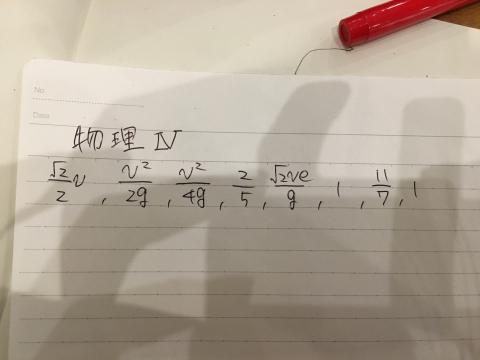 No.
Date
物理 IV
√2/2 v, v²/2g, v²/4g, 2/5, √2ve/g, 1, 11/7, 1